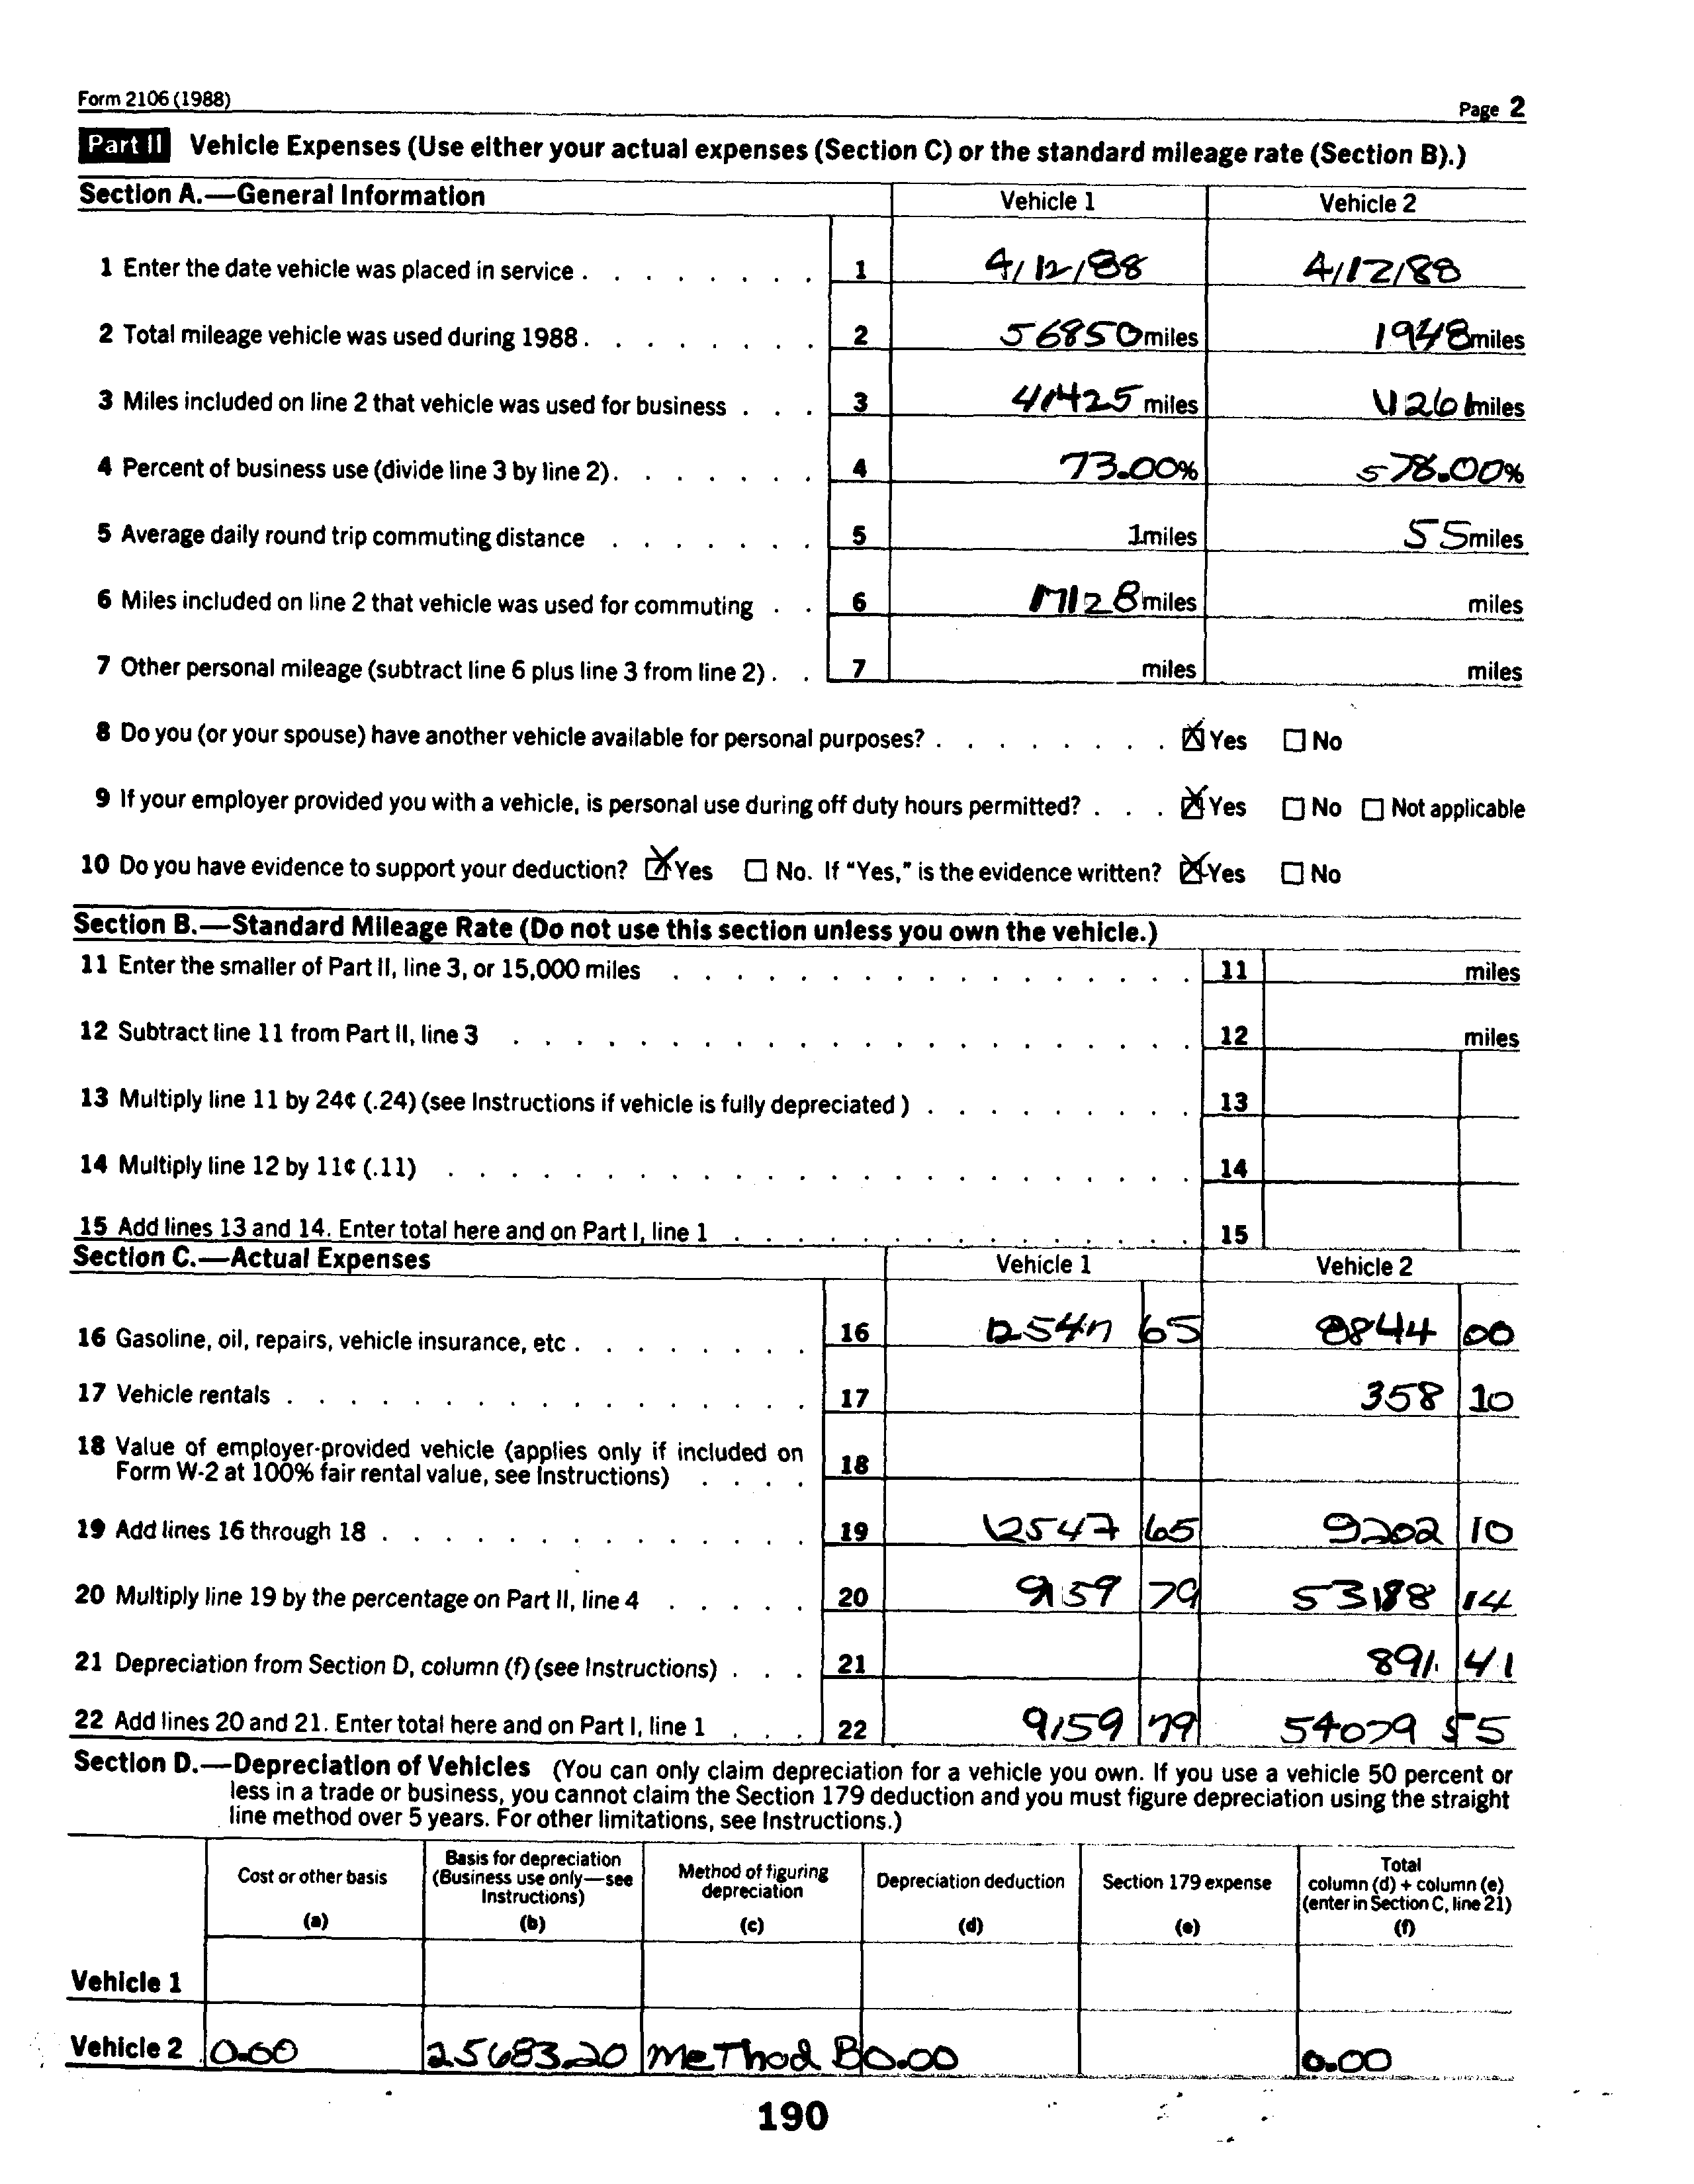 Form 2106 (1988) Page 2
Part II Vehicle Expenses (Use either your actual expenses (Section C) or the standard mileage rate (Section B).)
Section A.—General Information Vehicle 1 Vehicle 2
1 Enter the date vehicle was placed in service . . . . . . . . 1 4/12/88 4/12/88
2 Total mileage vehicle was used during 1988 . . . . . . . . 2 56850 miles 1948 miles
3 Miles included on line 2 that vehicle was used for business . . . 3 41425 miles 11261 miles
4 Percent of business use (divide line 3 by line 2) . . . . . . . 4 73.00% 578.00%
5 Average daily round trip commuting distance . . . . . . . 5 1 miles 55 miles
6 Miles included on line 2 that vehicle was used for commuting . . 6 17128 miles miles
7 Other personal mileage (subtract line 6 plus line 3 from line 2) . . 7 miles miles
8 Do you (or your spouse) have another vehicle available for personal purposes? . . . . . . . . ☒ Yes ☐ No
9 If your employer provided you with a vehicle, is personal use during off duty hours permitted? . . . ☒ Yes ☐ No ☐ Not applicable
10 Do you have evidence to support your deduction? ☒ Yes ☐ No. If "Yes," is the evidence written? ☒ Yes ☐ No
Section B.—Standard Mileage Rate (Do not use this section unless you own the vehicle.)
11 Enter the smaller of Part II, line 3, or 15,000 miles . . . . . . . . . . . . . . . . 11 miles
12 Subtract line 11 from Part II, line 3 . . . . . . . . . . . . . . . . . . . . . 12 miles
13 Multiply line 11 by 24¢ (.24) (see Instructions if vehicle is fully depreciated) . . . . . . . . . 13
14 Multiply line 12 by 11¢ (.11) . . . . . . . . . . . . . . . . . . . . . . . 14
15 Add lines 13 and 14. Enter total here and on Part I, line 1 . . . . . . . . . . . . . . 15
Section C.—Actual Expenses Vehicle 1 Vehicle 2
16 Gasoline, oil, repairs, vehicle insurance, etc . . . . . . . . 16 12547 65 8844 00
17 Vehicle rentals . . . . . . . . . . . . . . . . . 17 358 10
18 Value of employer-provided vehicle (applies only if included on
Form W-2 at 100% fair rental value, see Instructions) . . . . 18
19 Add lines 16 through 18 . . . . . . . . . . . . . . 19 12547 65 9202 10
20 Multiply line 19 by the percentage on Part II, line 4 . . . . . 20 9159 79 53188 14
21 Depreciation from Section D, column (f) (see Instructions) . . . 21 891 41
22 Add lines 20 and 21. Enter total here and on Part I, line 1 . . . 22 9159 79 54079 55
Section D.—Depreciation of Vehicles (You can only claim depreciation for a vehicle you own. If you use a vehicle 50 percent or
less in a trade or business, you cannot claim the Section 179 deduction and you must figure depreciation using the straight
line method over 5 years. For other limitations, see Instructions.)
Cost or other basis (a)
Basis for depreciation (Business use only—see Instructions) (b)
Method of figuring depreciation (c)
Depreciation deduction (d)
Section 179 expense (e)
Total column (d) + column (e) (enter in Section C, line 21) (f)
Vehicle 1
Vehicle 2 0.00 25683.20 Method B 0.00 0.00
190